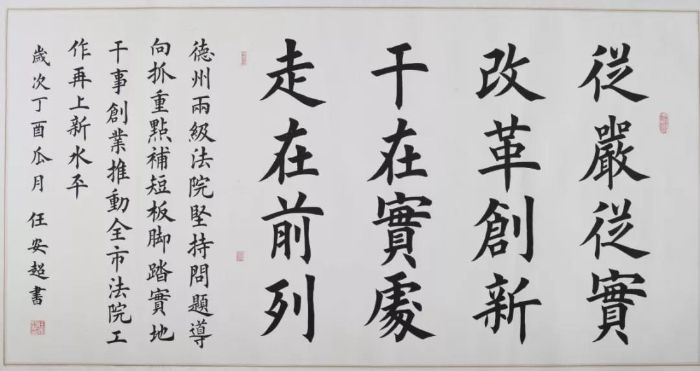 從嚴從實
改革創新
干在實處
走在前列
德州兩級法院堅持問題導
向抓重點補短板脚踏實地
干事創業推動全市法院工
作再上新水平
歲次丁酉瓜月任安超書